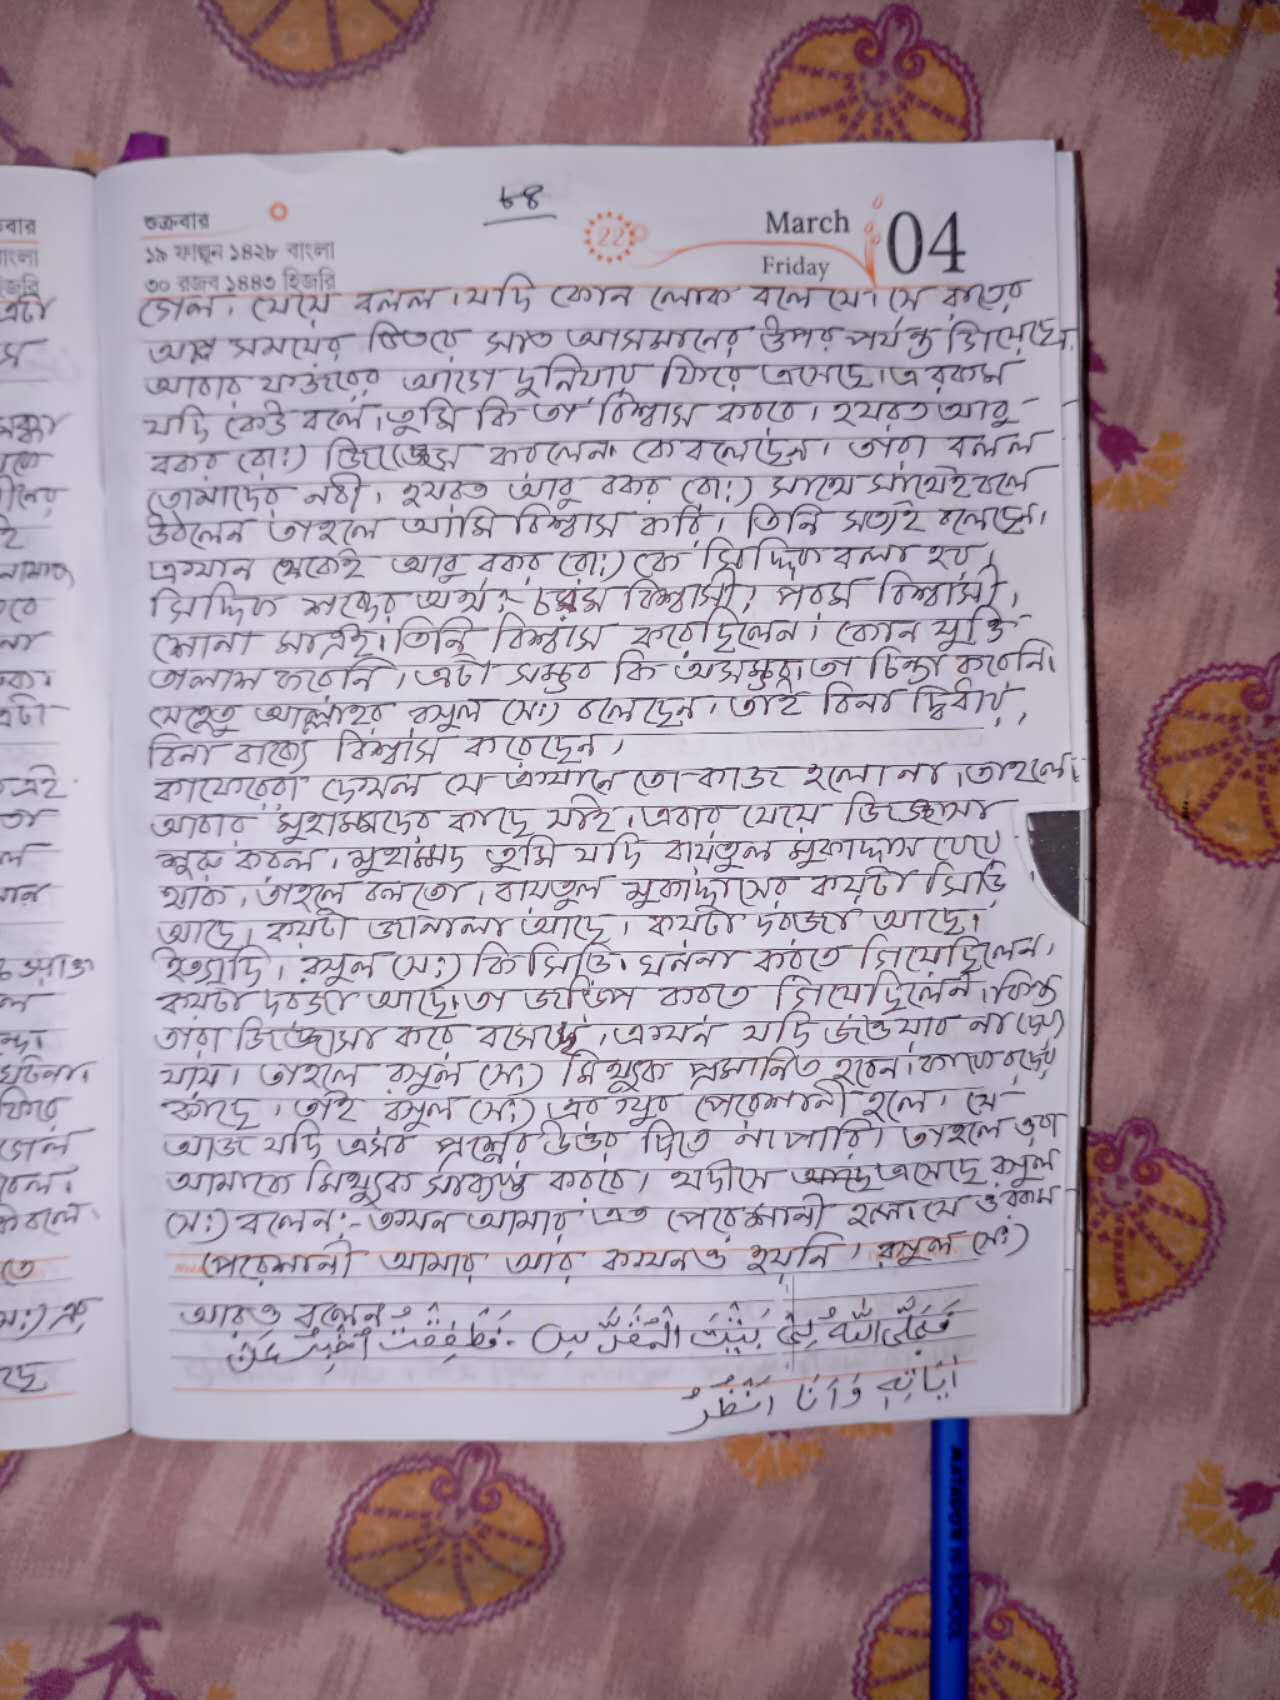 ৮৪
শুক্রবার
March 04
১৯ ফাল্গুন ১৪২৮ বাংলা
22
Friday
৩০ রজব ১৪৪৩ হিজরি
গেল। যেয়ে বলল। যদি কোন লোক বলে যে। সে রাতের
অল্প সময়ের ভিতরে সাত আসমানের উপর পর্যন্ত গিয়েছে।
আবার ফজরের আগে দুনিয়ায় ফিরে এসেছে। এরকম
যদি কেউ বলে। তুমি কি তা বিশ্বাস করবে। হযরত আবু
বকর (রা:) জিজ্ঞেস করলেন। কে বলেছেন। তারা বলল
তোমাদের নবী। হযরত আবু বকর (রা:) সাথে সাথেই বলে
উঠলেন তাহলে আমি বিশ্বাস করি। তিনি সত্যই বলেছেন।
এখান থেকেই আবু বকর (রা:) কে সিদ্দিক বলা হয়।
সিদ্দিক শব্দের অর্থ:- চরম বিশ্বাসী। পরম বিশ্বাসী।
শোনা মাত্রই। তিনি বিশ্বাস করেছিলেন। কোন যুক্তি
তালাশ করেনি। এটা সম্ভব কি অসম্ভব। তা চিন্তা করেনি।
যেহেতু আল্লাহর রসুল (স:) বলেছেন। তাই বিনা দ্বিধায়,
বিনা বাক্যে বিশ্বাস করেছেন।
কাফেরেরা দেখল যে এখানে তো কাজ হলো না। তাহলে
আবার মুহাম্মদের কাছে যাই। এবার যেয়ে জিজ্ঞাসা
শুরু করল। মুহাম্মদ তুমি যদি বায়তুল মুকাদ্দাস যেয়ে
থাক। তাহলে বলতো। বায়তুল মুকাদ্দাসের কয়টা সিঁড়ি
আছে। কয়টা জানালা আছে। কয়টা দরজা আছে।
ইত্যাদি। রসুল (স:) কি সিঁড়ি। গননা করতে গিয়েছিলেন।
কয়টা দরজা আছে। তা জরিপ করতে গিয়েছিলেন। কিন্তু
তারা জিজ্ঞাসা করে বসেছে। এখন যদি না
যায়। তাহলে রসুল (স:) মিথ্যুক প্রমানিত হবেন। কাফেরদের
কাছে। তাই রসুল (স:) এর খুব পেরেশানী হলো। যে
আজ যদি এসব প্রশ্নের উত্তর দিতে না পারি। তাহলে ওরা
আমাকে মিথ্যুক সাব্যস্ত করবে। হাদীসে এসেছে রসুল
(স:) বলেন:- তখন আমার এত পেরেশানী হলো। যে ওরকম
পেরেশানী আমার আর কখনও হয়নি। রসুল (স:)
আরও বলেন:
فجلى الله لي بيت المقدس فطفقت اخبرهم عن
اياته وانا انظر